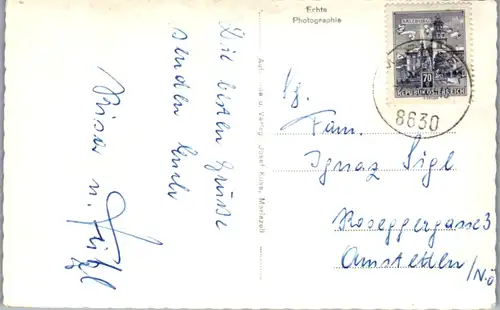 Echte
Photographie
SALZBURG
70
REPUBLIK ÖSTERREICH
8630
Die besten Grüße
senden Euch
u.
Aufnahme u. Verlag Josef Kuss, Mariazell
Fam.
Ignaz Sigl
Roseggergasse 3
Amstetten/N.Ö